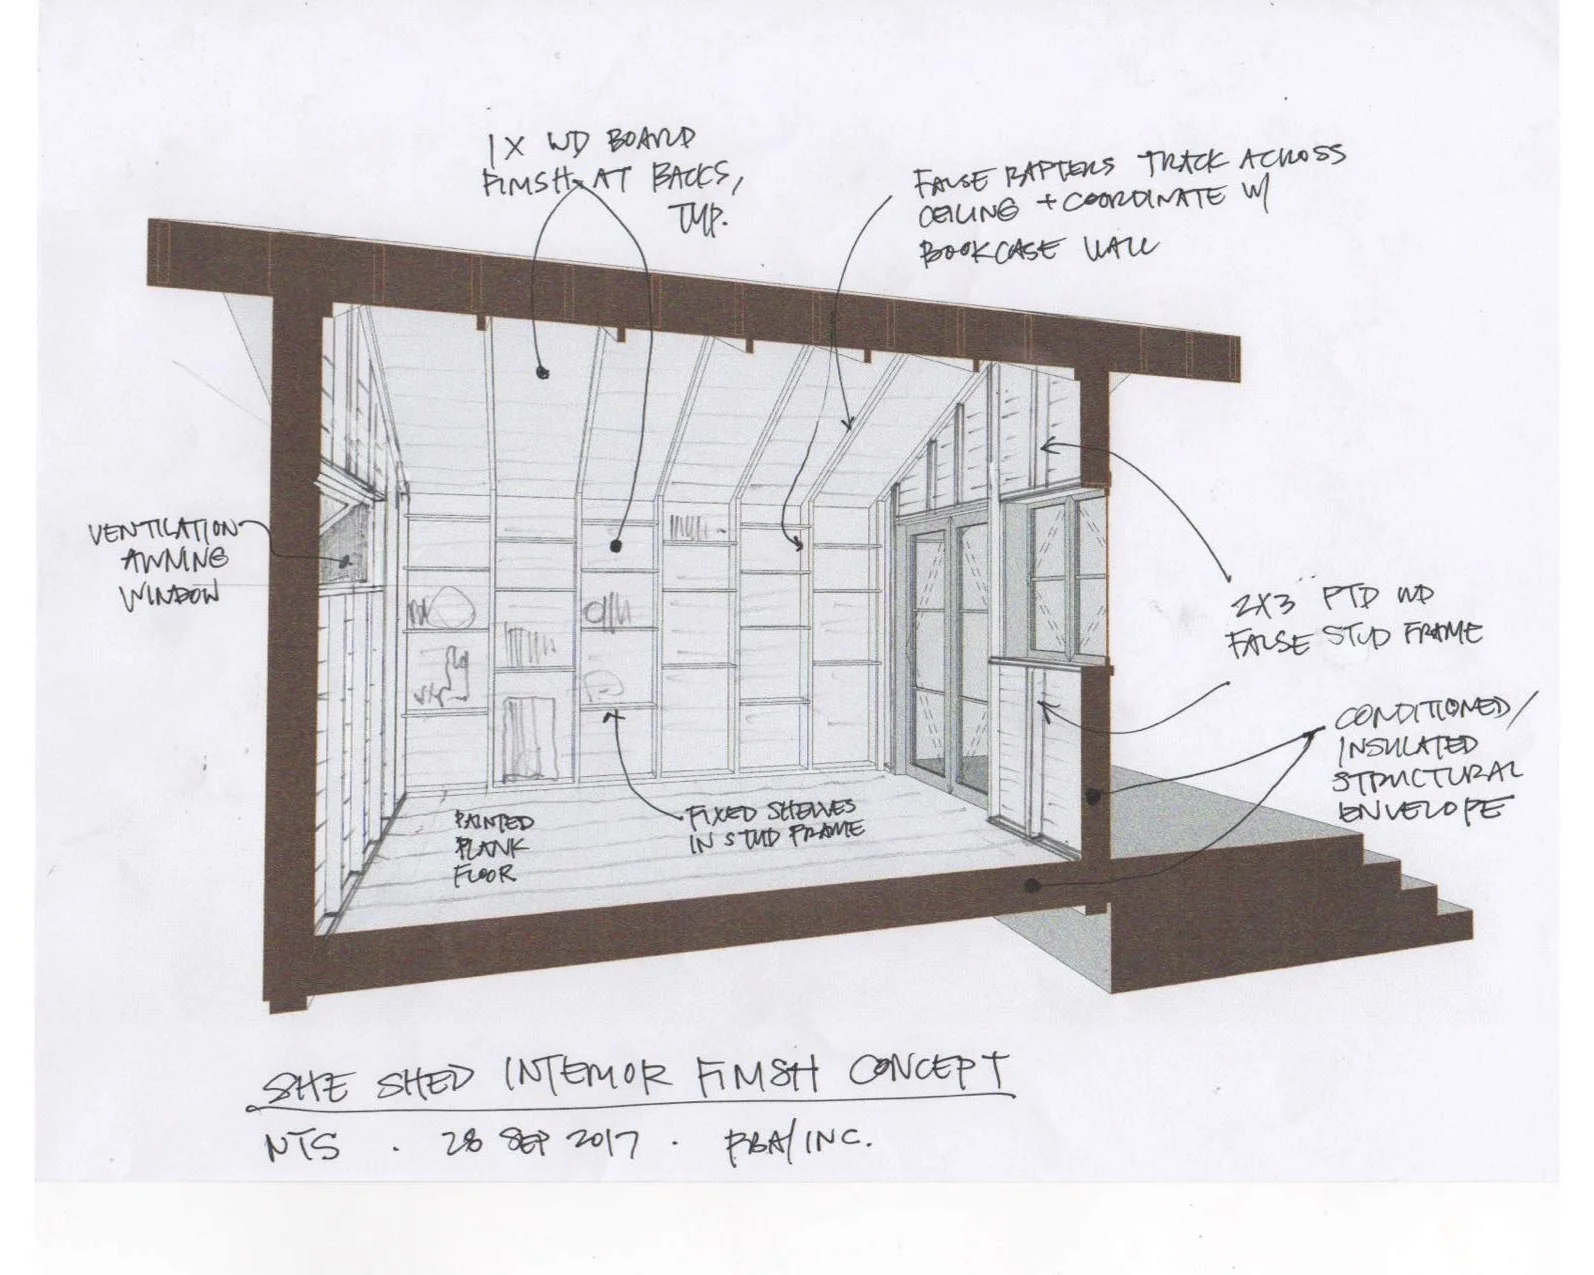 1X WD BOARD
FINISH AT BACKS,
TYP.
FALSE RAFTERS TRACK ACROSS
CEILING + COORDINATE W/
BOOKCASE WALL
VENTILATION
AWNING
WINDOW
2X3 PTD WD
FALSE STUD FRAME
CONDITIONED/
INSULATED
STRUCTURAL
ENVELOPE
PAINTED
PLANK
FLOOR
FIXED SHELVES
IN STUD FRAME
SHE SHED INTERIOR FINISH CONCEPT
NTS . 28 SEP 2017 . BBA/INC.